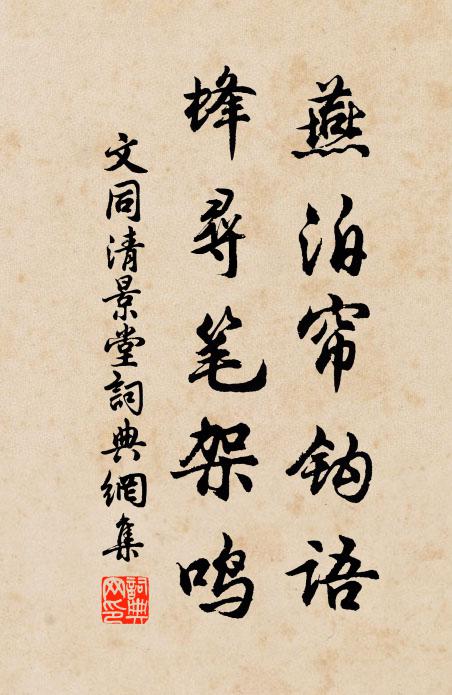 燕泊帘钩语
蜂寻笔架鸣
文同清景堂詞典網集
詞典網印